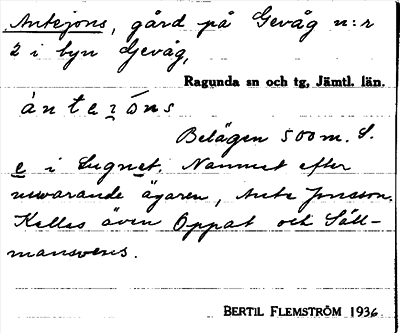 Antejons, gård på Gevåg n:r
2 i byn Gevåg,
Ragunda sn och tg, Jämtl. län.
ànteɪ̯óns
Belägen 500 m. S.
e i Lugnet. Namnet efter
nuvarande ägaren, Ante Jonsson.
Kallas även Oppat och Säll-
mansvens.
BERTIL FLEMSTRÖM 1936